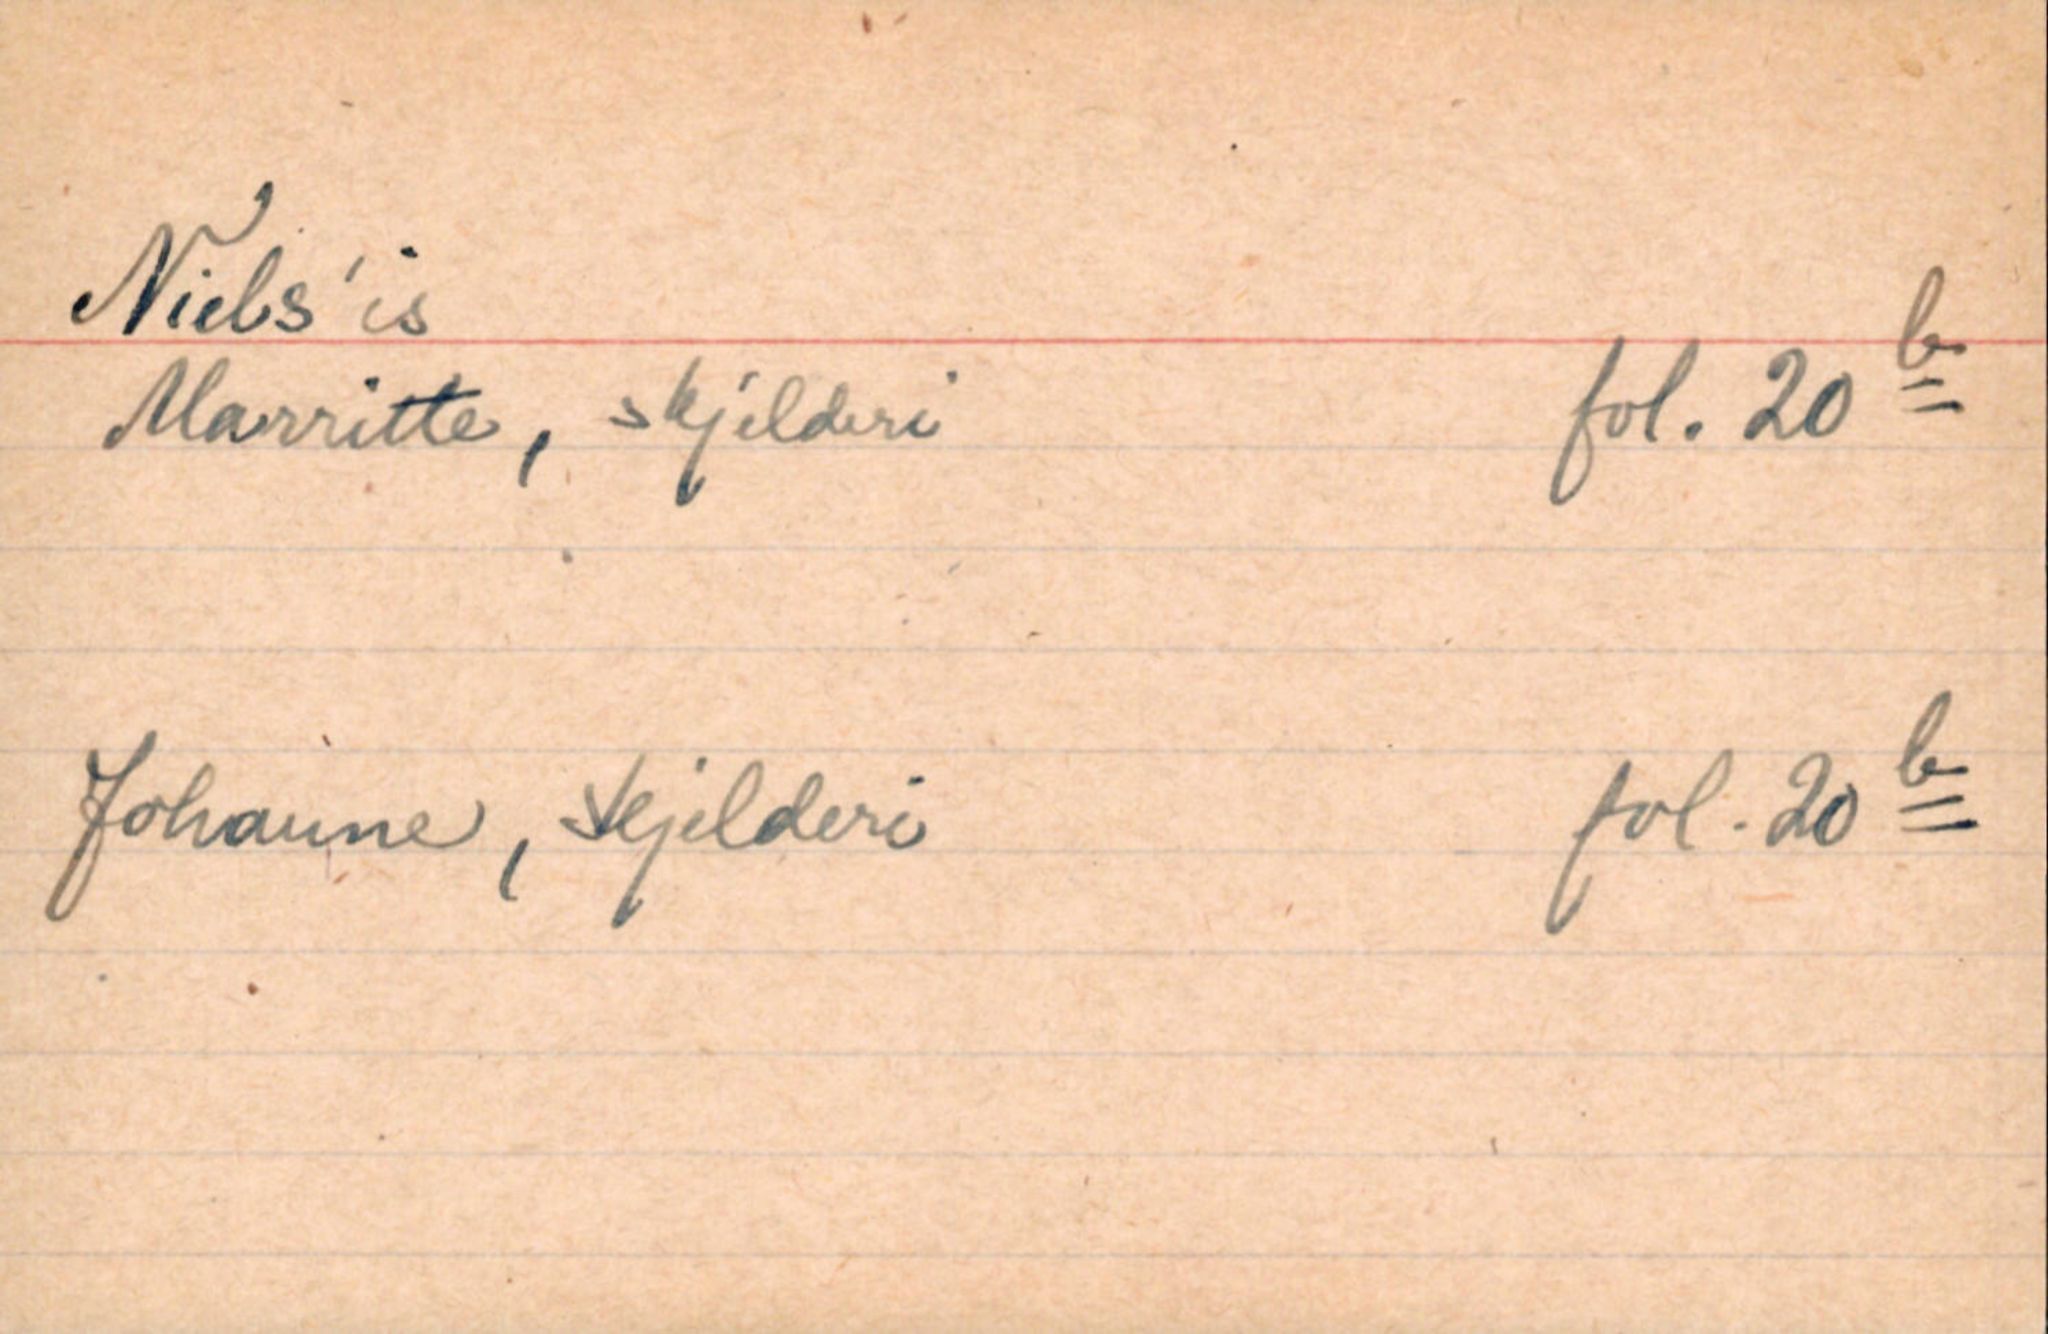 Niels'is
Marritte, skjelderi fol. 20 b
Johanne, skjelderi fol. 20 b